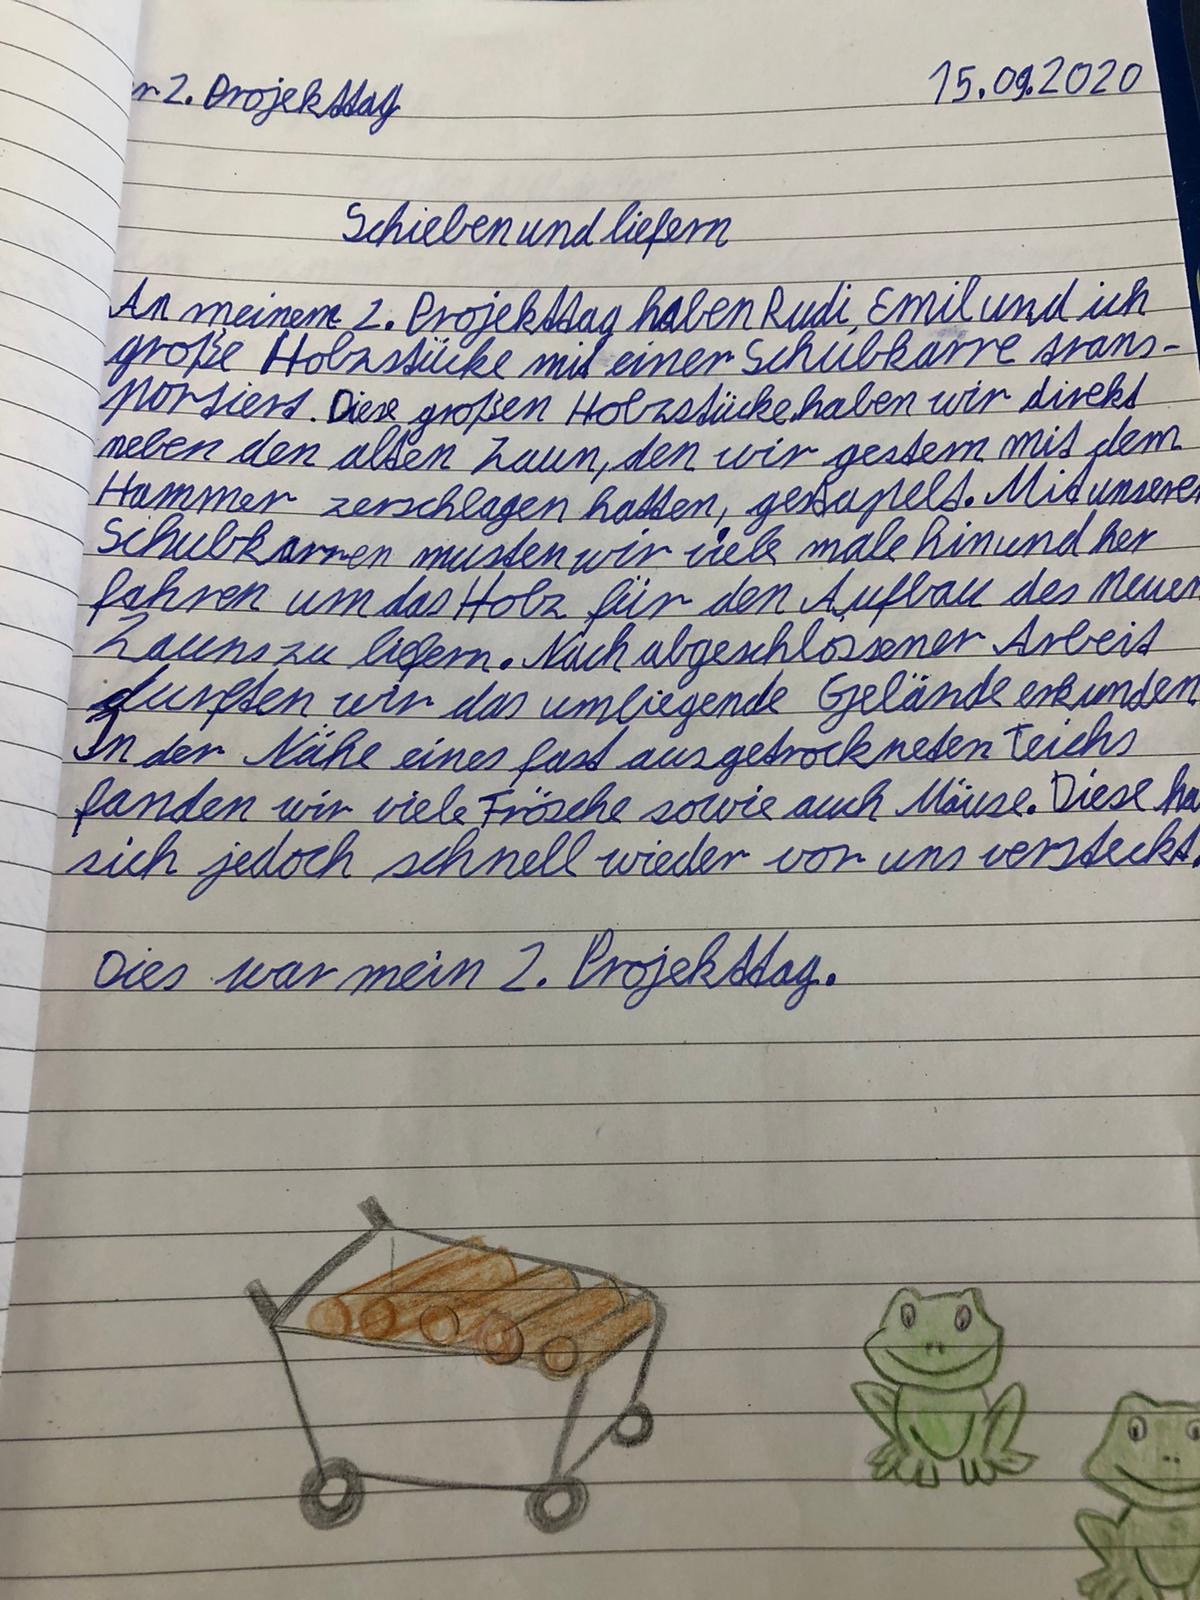 r 2. Projekttag 15.09.2020
Schieben und liefern
An meinem 2. Projekttag haben Rudi, Emil und ich
große Holzstücke mit einer Schubkarre trans-
portiert. Diese großen Holzstücke haben wir direkt
neben den alten Zaun, den wir gestern mit dem
Hammer zerschlagen hatten, gestapelt. Mit unseren
Schubkarren musten wir viele male hin und her
fahren um das Holz für den Aufbau des neuen
Zauns zu liefern. Nach abgeschlossener Arbeit
durften wir das umliegende Gelände erkunden
In der Nähe eines fast ausgetrockneten Teichs
fanden wir viele Frösche sowie auch Mäuse. Diese ha
sich jedoch schnell wieder vor uns versteckt.
Dies war mein 2. Projekttag.